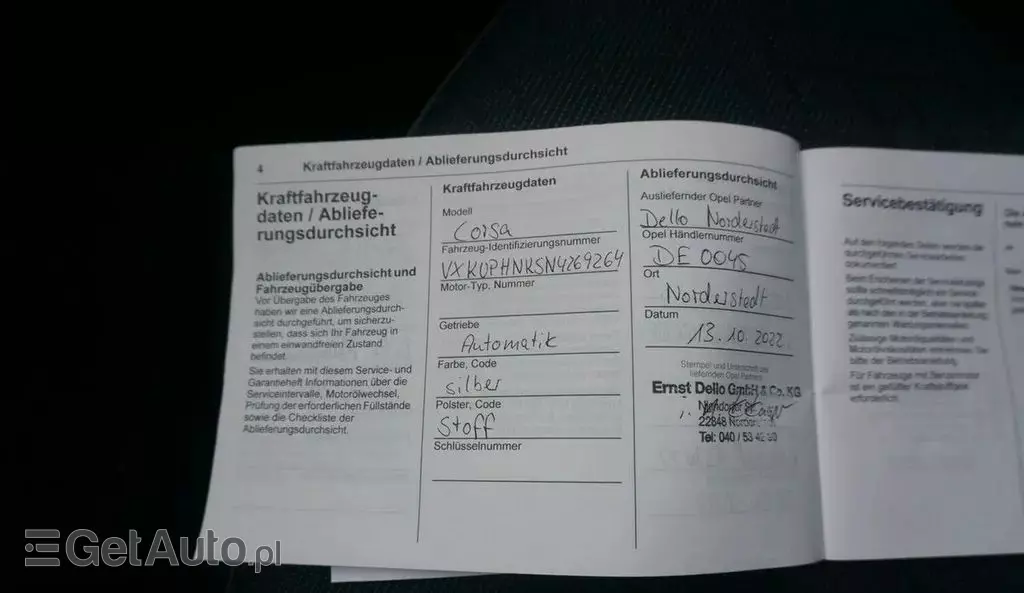 4
Kraftfahrzeugdaten / Ablieferungsdurchsicht
Kraftfahrzeug-
daten / Abliefe-
rungsdurchsicht
Ablieferungsdurchsicht und
Fahrzeugübergabe
Vor Übergabe des Fahrzeuges
haben wir eine Ablieferungsdurch-
sicht durchgeführt, um sicherzu-
stellen, dass sich Ihr Fahrzeug in
einem einwandfreien Zustand
befindet.
Sie erhalten mit diesem Service- und
Garantieheft Informationen über die
Serviceintervalle, Motorölwechsel,
Prüfung der erforderlichen Füllstände
sowie die Checkliste der
Ablieferungsdurchsicht.
Kraftfahrzeugdaten
Modell
Corsa
Fahrzeug-Identifizierungsnummer
VXKUPHNKSN4269264
Motor-Typ, Nummer
Getriebe
Automatik
Farbe, Code
silber
Polster, Code
Stoff
Schlüsselnummer
Ablieferungsdurchsicht
Ausliefernder Opel Partner
Dello Norderstedt
Opel Händlernummer
DE 0045
Ort
Norderstedt
Datum
13.10.2022
Stempel und Unterschrift des
liefernden Opel Partners
Ernst Dello GmbH & Co. KG
22848
Tel: 040 / 53
Servicebestätigung
Auf den folgenden Seiten werden die
durchgeführten Servicearbeiten
dokumentiert.
bitte der Betriebsanleitung.
Für Fahrzeuge mit Benzinmotor
erforderlich.
GetAuto.pl